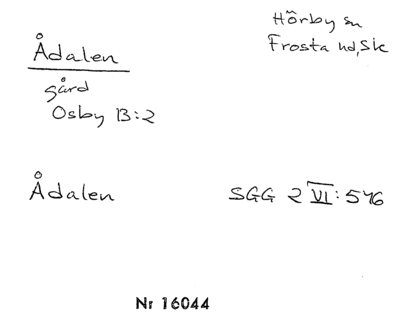 Hörby sn
Frosta hd, Sk
Ådalen
gård
Osby B:2
Ådalen SGG 2 VI: 546
Nr 16044